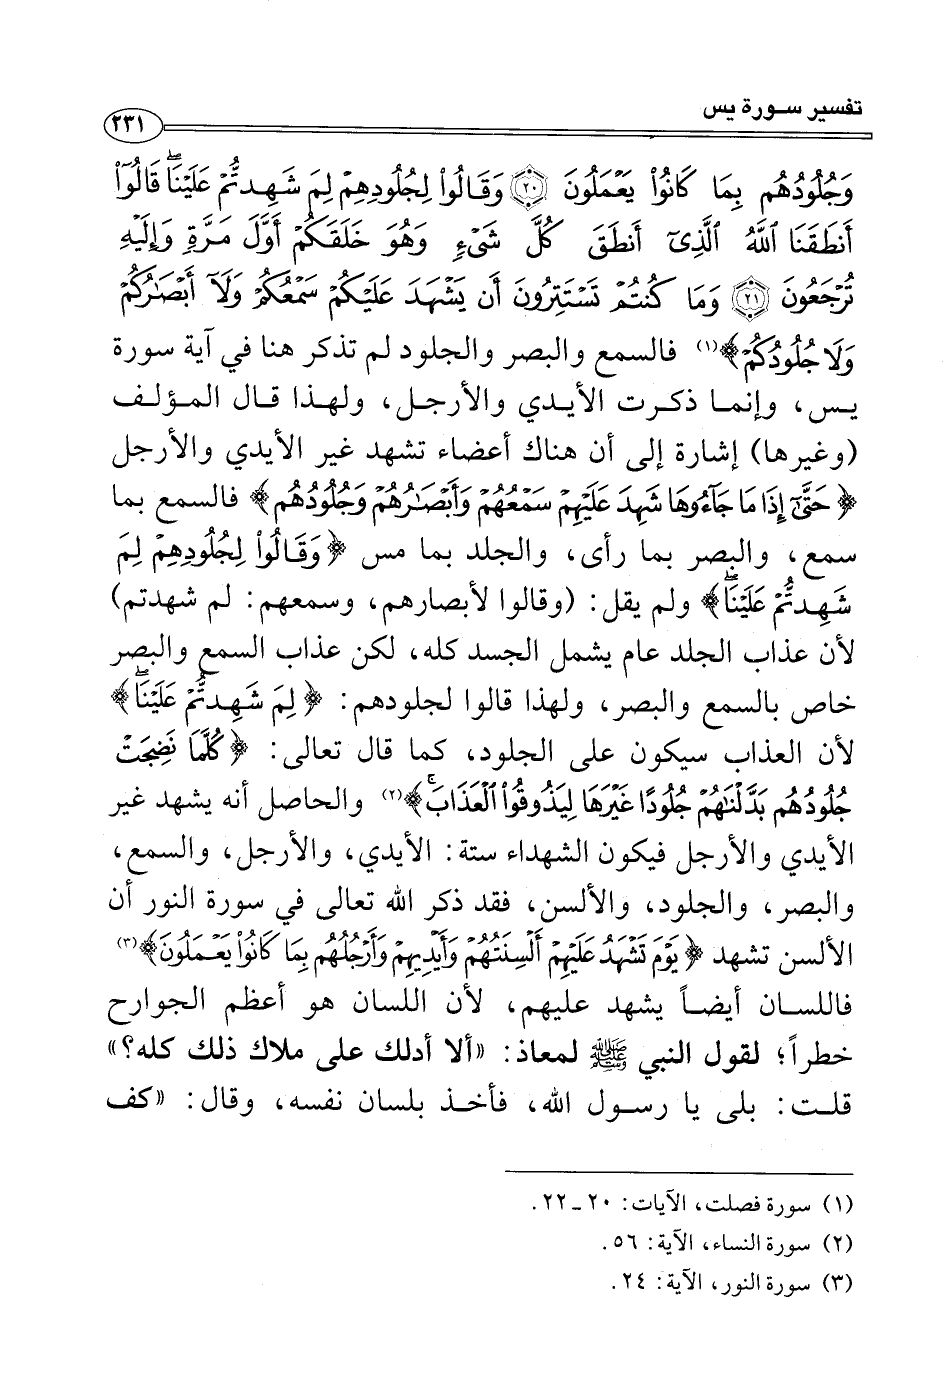 تفسير سورة يس
٢٣١
وَجُلُودُهُم بِمَا كَانُوا۟ يَعْمَلُونَ ﴿٢٠﴾ وَقَالُوا۟ لِجُلُودِهِمْ لِمَ شَهِدتُّمْ عَلَيْنَا ۖ قَالُوٓا۟
أَنطَقَنَا ٱللَّهُ ٱلَّذِىٓ أَنطَقَ كُلَّ شَىْءٍ وَهُوَ خَلَقَكُمْ أَوَّلَ مَرَّةٍ وَإِلَيْهِ
تُرْجَعُونَ ﴿٢١﴾ وَمَا كُنتُمْ تَسْتَتِرُونَ أَن يَشْهَدَ عَلَيْكُمْ سَمْعُكُمْ وَلَآ أَبْصَٰرُكُمْ
وَلَا جُلُودُكُمْ﴾(١) فالسمع والبصر والجلود لم تذكر هنا في آية سورة
يس، وإنما ذكرت الأيدي والأرجل، ولهذا قال المؤلف
(وغيرها) إشارة إلى أن هناك أعضاء تشهد غير الأيدي والأرجل
﴿حَتَّىٰٓ إِذَا مَا جَآءُوهَا شَهِدَ عَلَيْهِمْ سَمْعُهُمْ وَأَبْصَٰرُهُمْ وَجُلُودُهُم﴾ فالسمع بما
سمع، والبصر بما رأى، والجلد بما مس ﴿وَقَالُوا۟ لِجُلُودِهِمْ لِمَ
شَهِدتُّمْ عَلَيْنَا ۖ﴾ ولم يقل: (وقالوا لأبصارهم، وسمعهم: لم شهدتم)
لأن عذاب الجلد عام يشمل الجسد كله، لكن عذاب السمع والبصر
خاص بالسمع والبصر، ولهذا قالوا لجلودهم: ﴿لِمَ شَهِدتُّمْ عَلَيْنَا ۖ﴾
لأن العذاب سيكون على الجلود، كما قال تعالى: ﴿كُلَّمَا نَضِجَتْ
جُلُودُهُم بَدَّلْنَٰهُمْ جُلُودًا غَيْرَهَا لِيَذُوقُوا۟ ٱلْعَذَابَ ۗ﴾(٢) والحاصل أنه يشهد غير
الأيدي والأرجل فيكون الشهداء ستة: الأيدي، والأرجل، والسمع،
والبصر، والجلود، والألسن، فقد ذكر الله تعالى في سورة النور أن
الألسن تشهد ﴿يَوْمَ تَشْهَدُ عَلَيْهِمْ أَلْسِنَتُهُمْ وَأَيْدِيهِمْ وَأَرْجُلُهُم بِمَا كَانُوا۟ يَعْمَلُونَ﴾(٣)
فاللسان أيضاً يشهد عليهم، لأن اللسان هو أعظم الجوارح
خطراً؛ لقول النبي ﷺ لمعاذ: «ألا أدلك على ملاك ذلك كله؟»
قلت: بلى يا رسول الله، فأخذ بلسان نفسه، وقال: «كف
(١) سورة فصلت، الآيات: ٢٠ ـ ٢٢.
(٢) سورة النساء، الآية: ٥٦.
(٣) سورة النور، الآية: ٢٤.